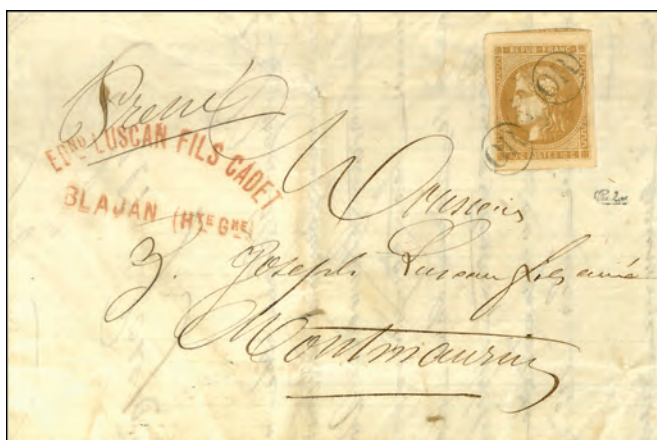 REPUB · FRANC
OR OR
10 C POSTES 10 C
EDND LUSCAN FILS CADET
BLAJAN (HTE GNE)
Monsieur
J. Joseph Luscan fils ainé
Montmaurin